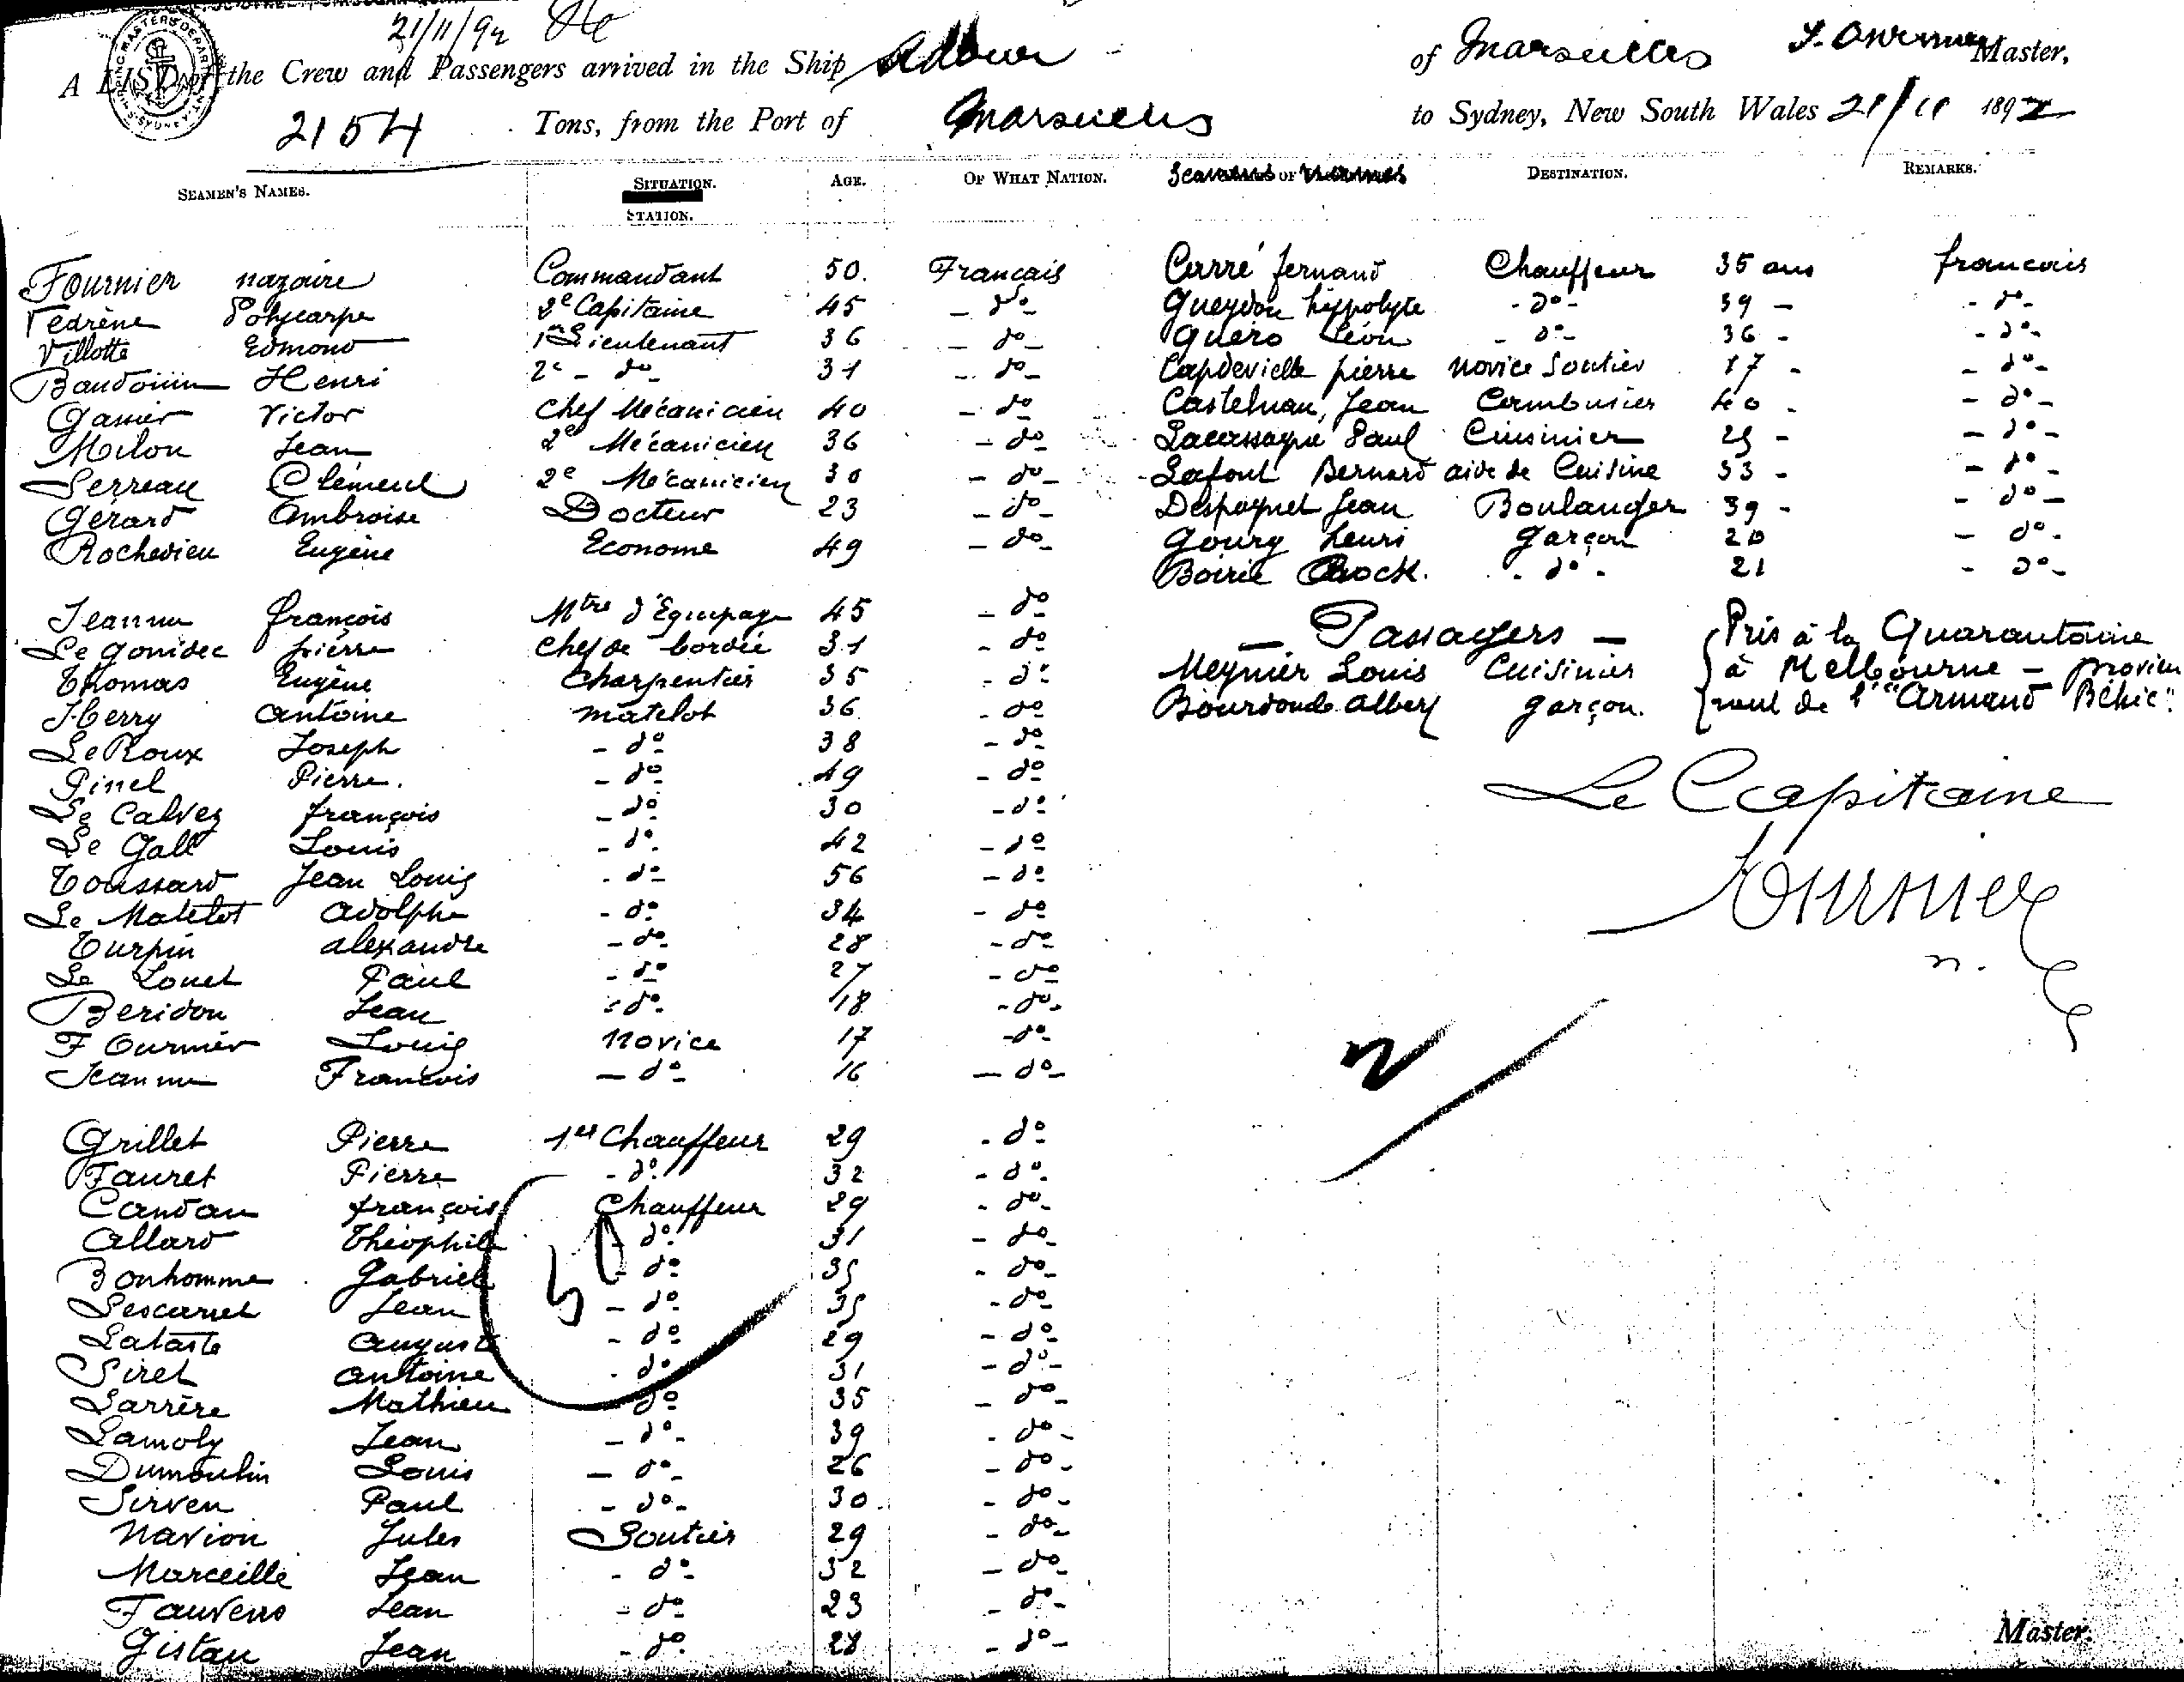 21/11/92
A LIST of the Crew and Passengers arrived in the Ship Adour of Marseilles F. Ournier Master,
2154 Tons, from the Port of Marseilles to Sydney, New South Wales 21/11 1892
SEAMEN'S NAMES. SITUATION. STATION. AGE. OF WHAT NATION. Seamens OF Names DESTINATION. REMARKS.
Fournier Nazaire Commandant 50. Francais
Vedrène Polycarpe 2e Capitaine 45 - do -
Villotte Edmond 1er Lieutenant 36 - do -
Baudouin Henri 2e - do - 31 - do -
Garnier Victor Chef Mécanicien 40 - do
Milon Jean 2e Mécanicien 36 - do
Serreau Clément 2e Mécanicien 30 - do -
Gérard Ambroise Docteur 23 - do -
Rochedieu Eugène Econome 49 - do -
Jeanne françois Mtre d'Equipage 45 - do
Le Gonidec pierre chef de bordée 31 - do
Thomas Eugène Charpentier 35 - do
Antoine matelot 36 - do
Le Roux Joseph - do 38 - do
Pinel Pierre. - do 49 - do
Le Calvez françois - do 30 - do
Le Gall Louis - do 42 - do
Toussard Jean Louis - do 56 - do
Le Matelot Adolphe - do 34 - do
Turpin alexandre - do 28 - do
Le Louet Paul - do 27 - do
Beridon Jean - do 18 - do -
Fournier Louis Novice 17 - do
Jeanne Francois - do - 16 - do -
Grillet Pierre 1er Chauffeur 29 - do
Fauret Pierre - do 32 - do
Candau françois Chauffeur 29 - do -
Allard Théophile - do 31 - do
Bonhomme Gabriel - do 35 - do -
Lescarret Jean - do 35 - do
Lataste Auguste - do 29 - do
Siret Antoine - do 31 - do -
Larrère Mathieu - do 35 - do -
Lamoly Jean - do - 39 - do -
Dumoulin Louis - do - 26 - do -
Sirven Paul - do - 30 - do -
Navion Jules Soutier 29 - do -
Marceille Jean - do 32 - do -
Jean - do 23 - do -
Gistau Jean - do 28 - do -
50
Carré fernand Chauffeur 35 ans francais
Gueydon hippolyte - do - 39 - - do -
Quéro Léon - do - 36 - - do -
Capdevielle pierre Novice Soutier 17 - - do -
Castelnau, Jean Cambusier 40 - - do -
Lacassagne Paul Cuisinier 25 - - do -
Lafont Bernard aide de Cuisine 33 - - do -
Despagnet Jean Boulanger 39 - - do -
Goury henri Garçon 20 - do -
Boirie Rock. - do - 21 - do -
- Passagers -
Meynier Louis Cuisinier
Bourdonde Albert garçon.
Pris à la Quarantaine
à Melbourne - provien
nant de l' "Armand Béhic".
Le Capitaine
Fournier
n.
2
Master.